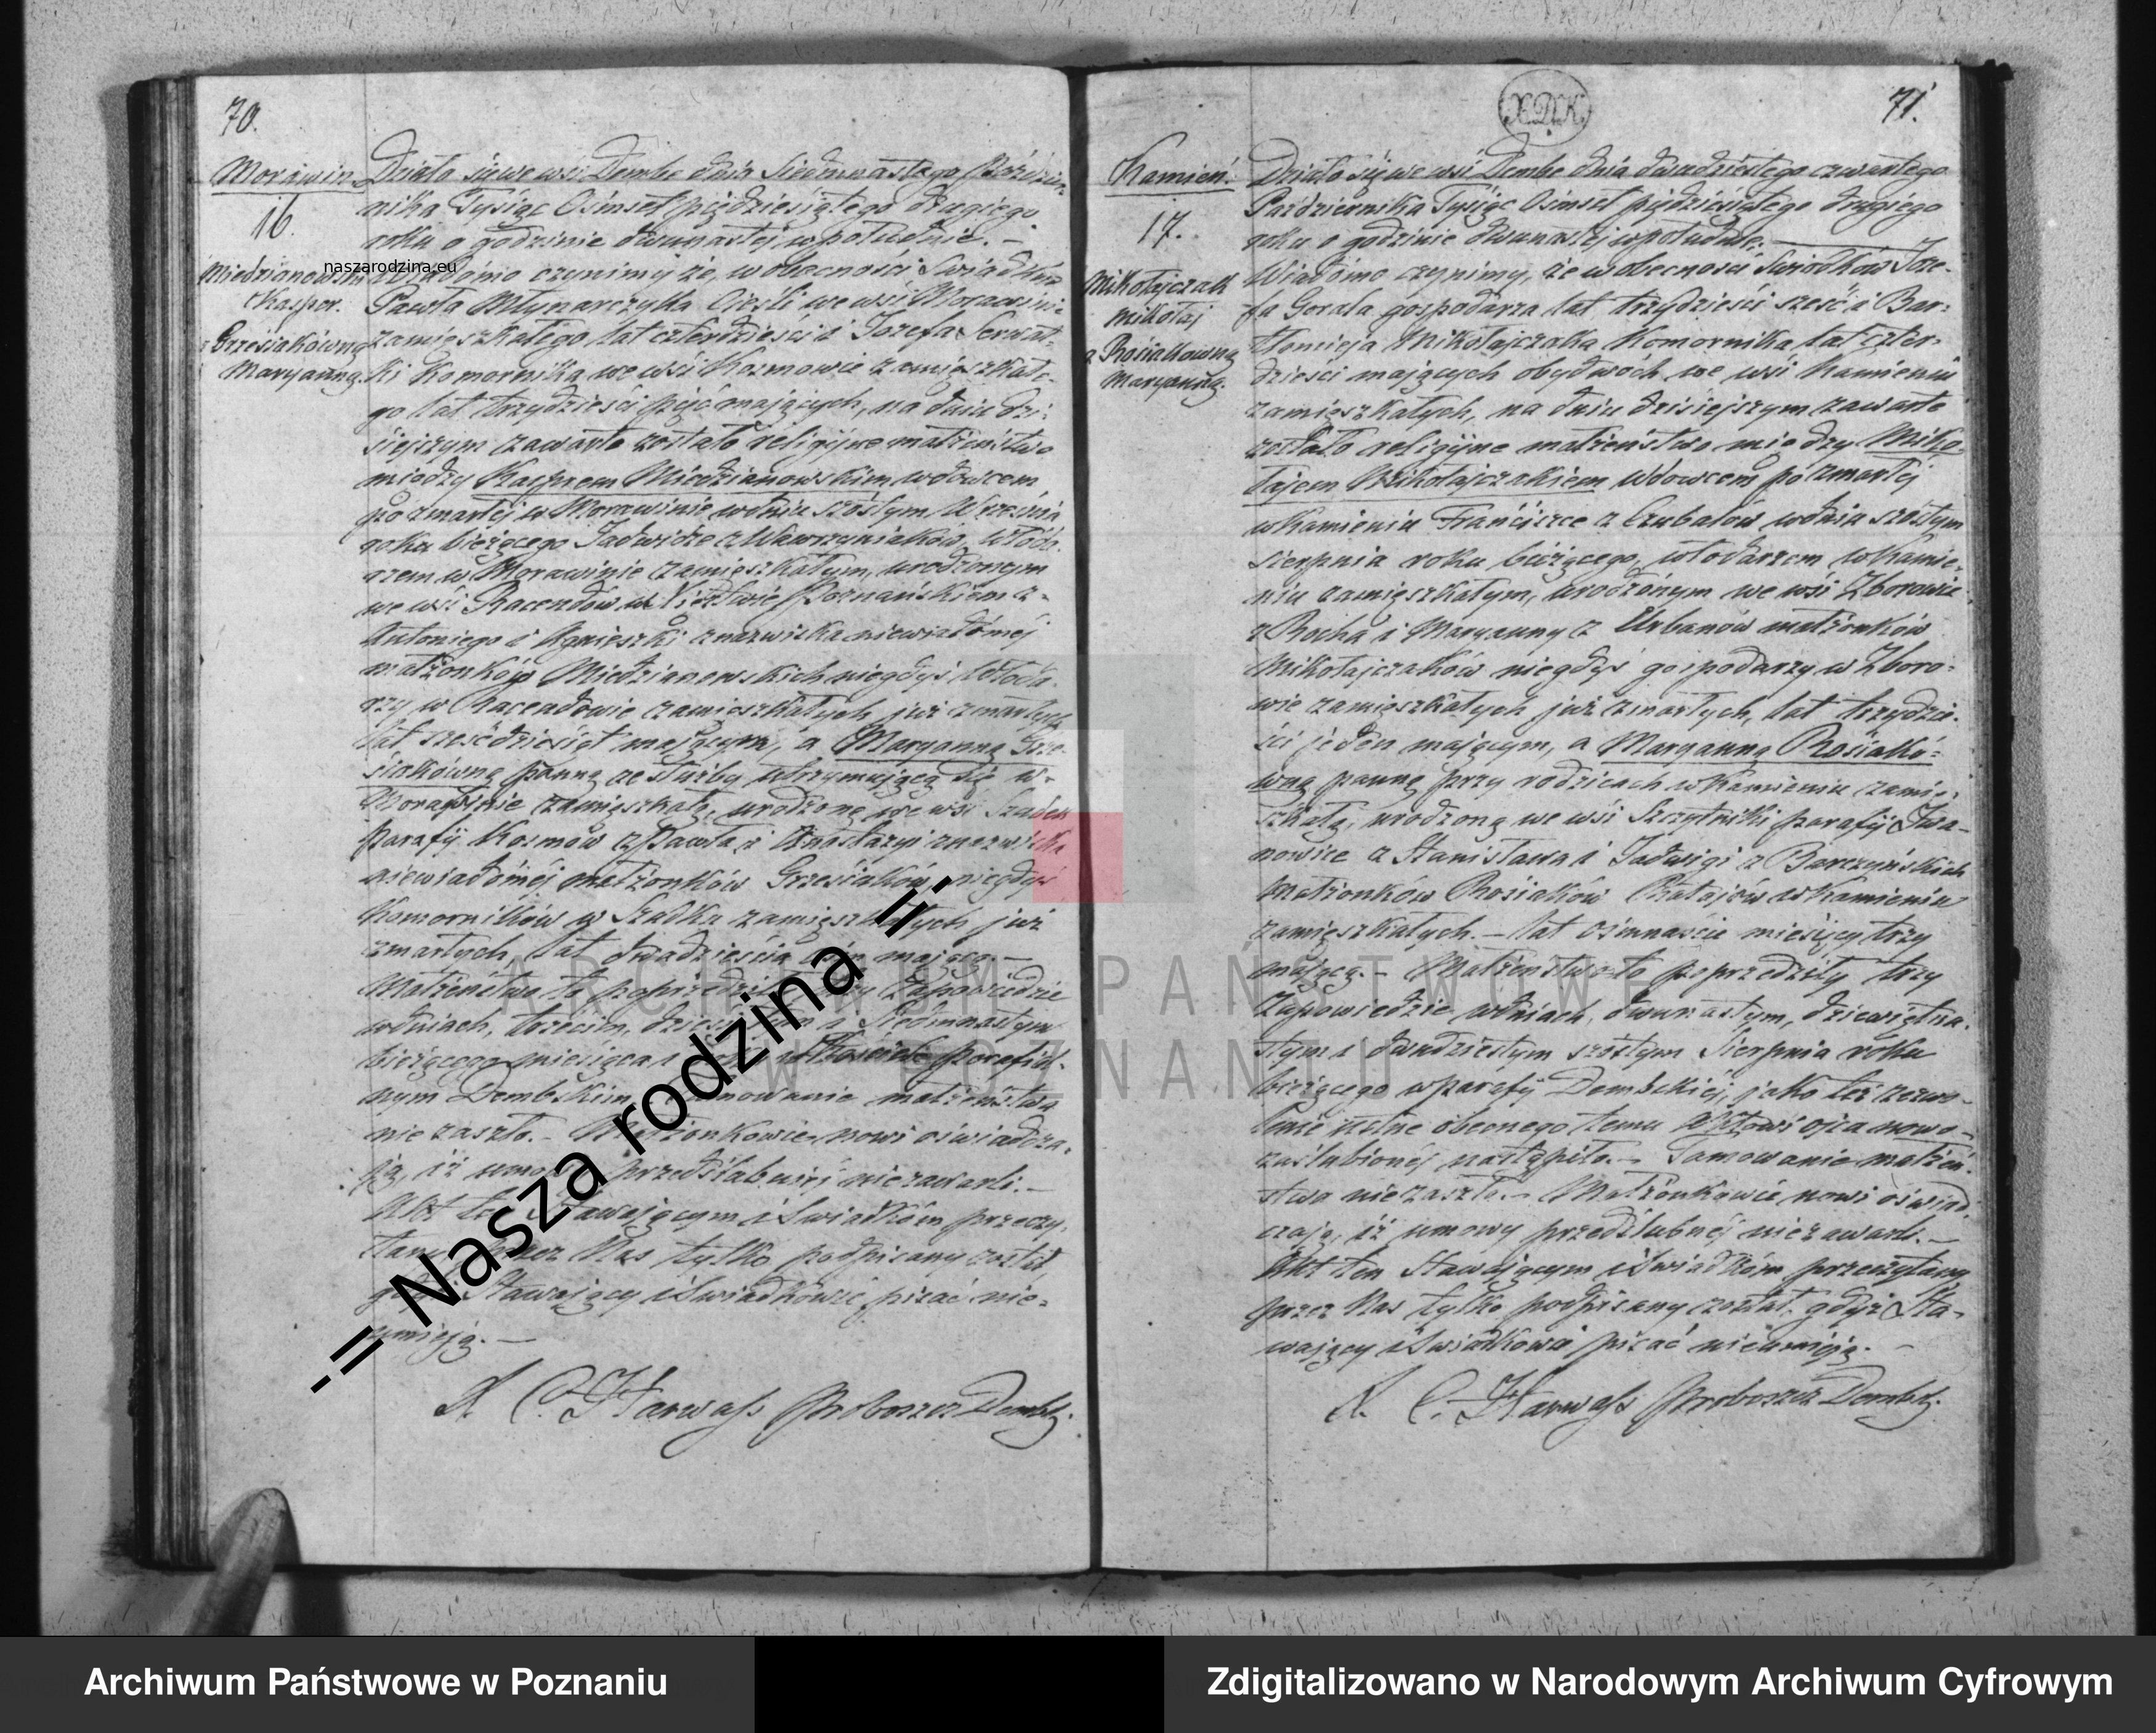 70.
Morawin
16.
Miedzianowski
Kasper.
z Grzesiakówną
Maryanną.
naszarodzina.eu
Działo się we wsi Dembe dnia Siedmnastego Paździer-
nika Tysiąc Osimset pięździesiątego drugiego
roku o godzinie dwunastej w południe. –
Wiadomo czynimy że, w obecności Świadków
Pawła Młynarczyka Cieśli we wsi Morawinie
zamięszkałego lat czterdzieści i Józefa Serwat-
ki Komornika we wsi Kosmowie zamięszkałe-
go lat trzydzieści pięć mających, na dniu dzi-
siejszym zawarte zostało religijne małżeństwo
między Kasprem Miedzianowskim wdowcem
po zmarłej w Morawinie w dniu szóstym Września
roku bieżącego Jadwidze z Wawrzyniaków, włoda-
rzem w Morawinie zamięszkałym, urodzonym
we wsi Racendów w Xięstwie Poznańskiem z
Antoniego i Agnieszki z nazwiska niewiadomej
małżonków Miedzianowskich niegdyś Włoda-
rzy w Racendowie zamieszkałych już zmarłych
lat sześćdziesiąt mającym, a Maryanną Grze-
siakówną panną ze służby utrzymującą się w
Morawinie zamięszkałą, urodzoną we wsi Szadek
parafij Kosmów z Pawła i Anastazyi z nazwiska
niewiadomej małżonków Grzesiaków niegdyś
Komorników w Szadku zamięszkałych już
zmarłych, lat dwadzieścia ośm mającą. –
Małżeństwo to poprzedziły trzy Zapowiedzie
w dniach, trzecim, dziesiątym i Siedmnastym
bieżącego miesiąca i roku w Kościele parafial-
nym Dembskim. Tamowanie małżeństwa
nie zaszło. – Małżonkowie nowi oświadcza-
ją, iż umowy przedślubnej nie zawarli. –
Akt ten Stawającym i Świadkom przeczy-
tany przez Nas tylko podpisany został,
gdyż Stawający i Świadkowie pisać nie
umieją. –
X. C. Harwass Proboszcz Dembsk.
71.
Kamień.
17.
Mikołajczak
Mikołaj
z Rosiakówną
Maryanną.
Działo się we wsi Dembe dnia dwudziestego czwartego
Października Tysiąc Osimset pięździesiątego drugiego
roku o godzinie dwunastej w południe. –
Wiadomo czynimy, że w obecności Świadków Józe-
fa Gorala gospodarza lat trzydzieści sześć i Bar-
tłomieja Mikołajczaka Komornika lat czter-
dzieści mających obydwóch we wsi Kamieniu
zamięszkałych, na dniu dzisiejszym zawarte
zostało religijne małżeństwo między Miko-
łajem Mikołajczakiem Wdowcem po zmarłej
w Kamieniu Franciszce z Czubałów w dniu szóstym
Sierpnia roku bieżącego, włodarzem w Kamie-
niu zamięszkałym, urodzonym we wsi Zborowie
z Rocha i Maryanny z Urbanów małżonków
Mikołajczaków niegdyś gospodarzy w Zboro-
wie zamięszkałych już zmarłych, lat trzydzie-
ści jeden mającym, a Maryanną Rosiakó-
wną panną przy rodzicach w Kamieniu zamię-
szkałą, urodzoną we wsi Szczytniki parafij Iwa-
nowice z Stanisława i Jadwigi z Barczyńskich
małżonków Rosiaków Ratajów w Kamieniu
zamięszkałych. – lat ośmnaście miesięcy trzy
mającą. – Małżeństwo to poprzedziły trzy
Zapowiedzie w dniach, dwunastym, dziewiętna-
stym i dwudziestym szóstym Sierpnia roku
bieżącego w parafij Dembskiej, jako też zezwo-
lenie ustne obecnego temu aktowi ojca nowo-
zaślubionej nastąpiło. – Tamowanie małżeń-
stwa nie zaszło. – Małżonkowie nowi oświad-
czają, iż umowy przedślubnej nie zawarli. –
Akt ten Stawającym i Świadkom przeczytany
przez Nas tylko podpisany został, gdyż Sta-
wający i Świadkowie pisać nie umieją. –
X. C. Harwass Proboszcz Dembsk.
-= Nasza rodzina =-
ARCHIWUM PAŃSTWOWE
W POZNANIU
Archiwum Państwowe w Poznaniu
Zdigitalizowano w Narodowym Archiwum Cyfrowym